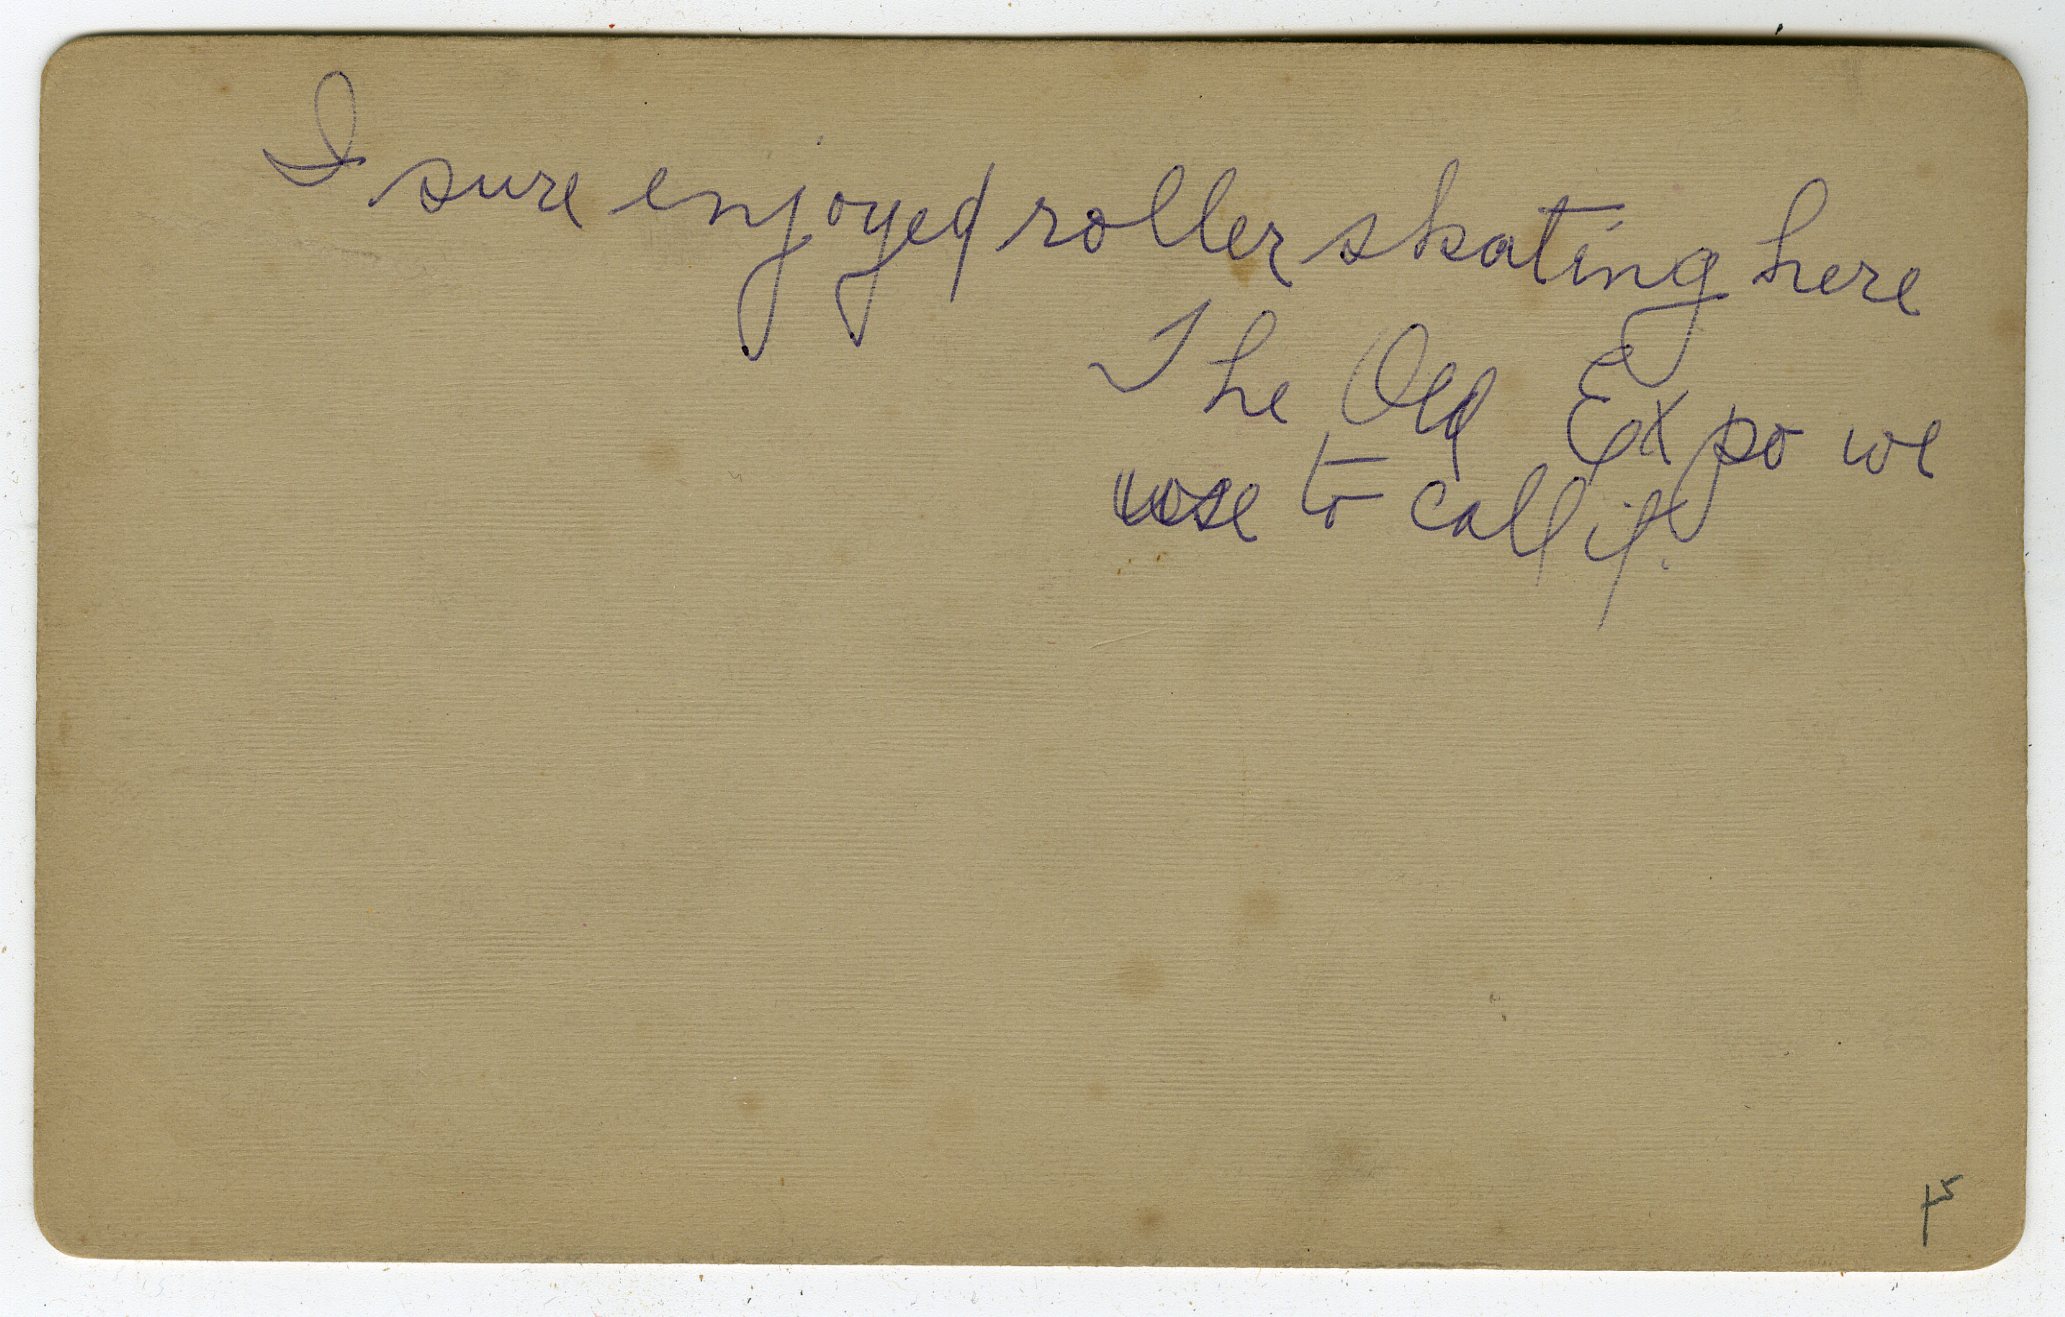 I sure enjoyed roller skating here
The Old Expo we
use to call it.